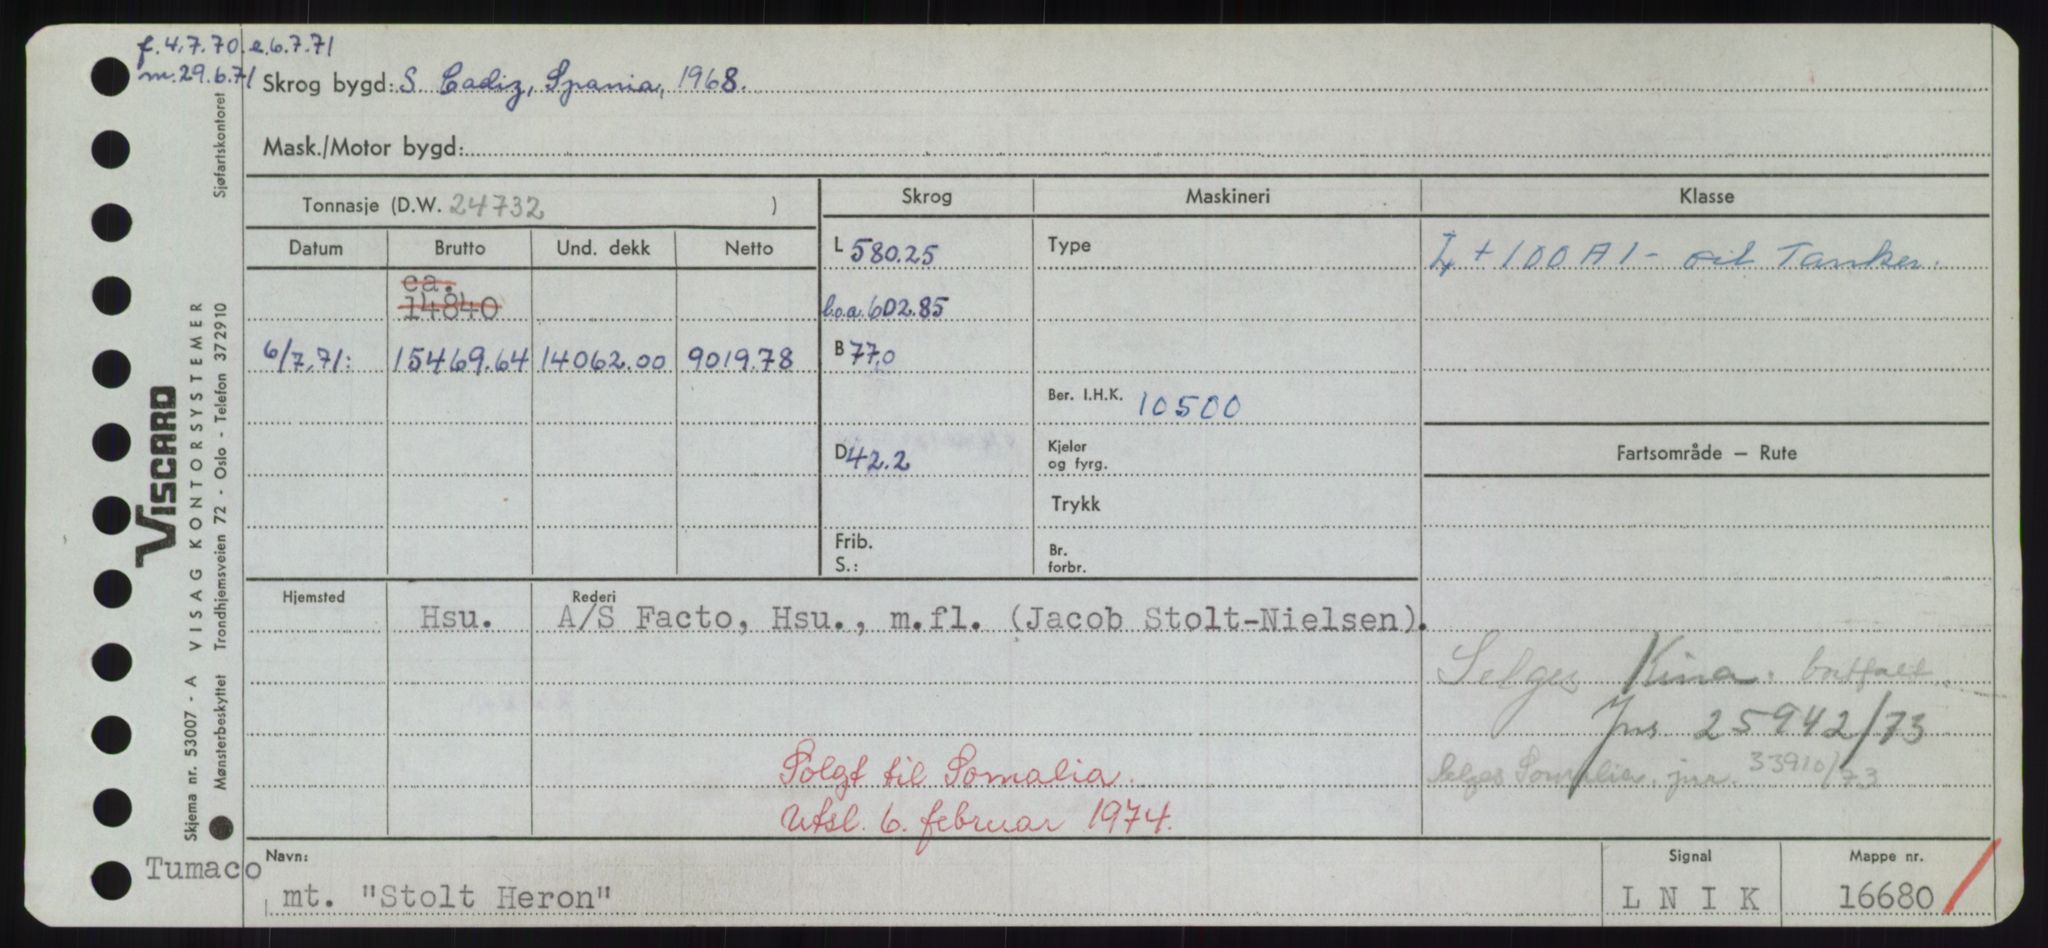 f. 4.7.70. e. 6.7.71
m. 29.6.71
Skrog bygd: S. Cadiz, Spania, 1968.
Mask./Motor bygd:
Tonnasje (D.W. 24732 )
Skrog Maskineri Klasse
Datum Brutto Und. dekk Netto
ca.
14840
6/7.71: 15469.64 14062.00 9019.78
L 580.25
l.o.a. 602.85
B 77.0
D 42.2
Frib.
S.:
Type
Ber. I.H.K. 10500
Kjeler
og fyrg.
Trykk
Br.
forbr.
+ 100 A 1 - oil Tanker.
Fartsområde – Rute
Hjemsted Rederi
Hsu. A/S Facto, Hsu., m.fl. (Jacob Stolt-Nielsen).
Selges Kina. bortfalt.
Jnr. 25942/73
Selges Somalia, jnr. 33910/73
Solgt til Somalia.
Utsl. 6. februar 1974.
Tumaco
Navn:
mt. "Stolt Heron"
Signal
L N I K
Mappe nr.
16680
Skjema nr. 53007 - A VISAG KONTORSYSTEMER
VISCARD
Mønsterbeskyttet Trondhjemsveien 72 - Oslo - Telefon 372910 Sjøfartskontoret